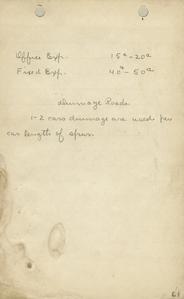 Office Exp. 15¢-20¢
Fixed Exp. 40¢-50¢
Dunnage Roads
1-2 cars dunnage are used per
car length of spur.
61